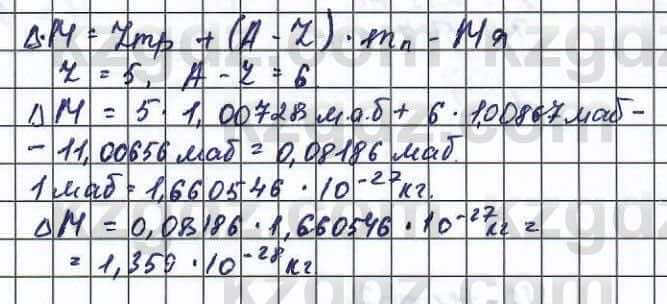 ΔM = Zmp + (A - Z) · mn - Mя
Z = 5, A - Z = 6.
ΔM = 5 · 1,00728 м.а.б + 6 · 1,00867 маб -
- 11,00656 маб = 0,08186 маб.
1 маб = 1,660546 · 10⁻²⁷ кг.
ΔM = 0,08186 · 1,660546 · 10⁻²⁷ кг =
= 1,359 · 10⁻²⁸ кг.